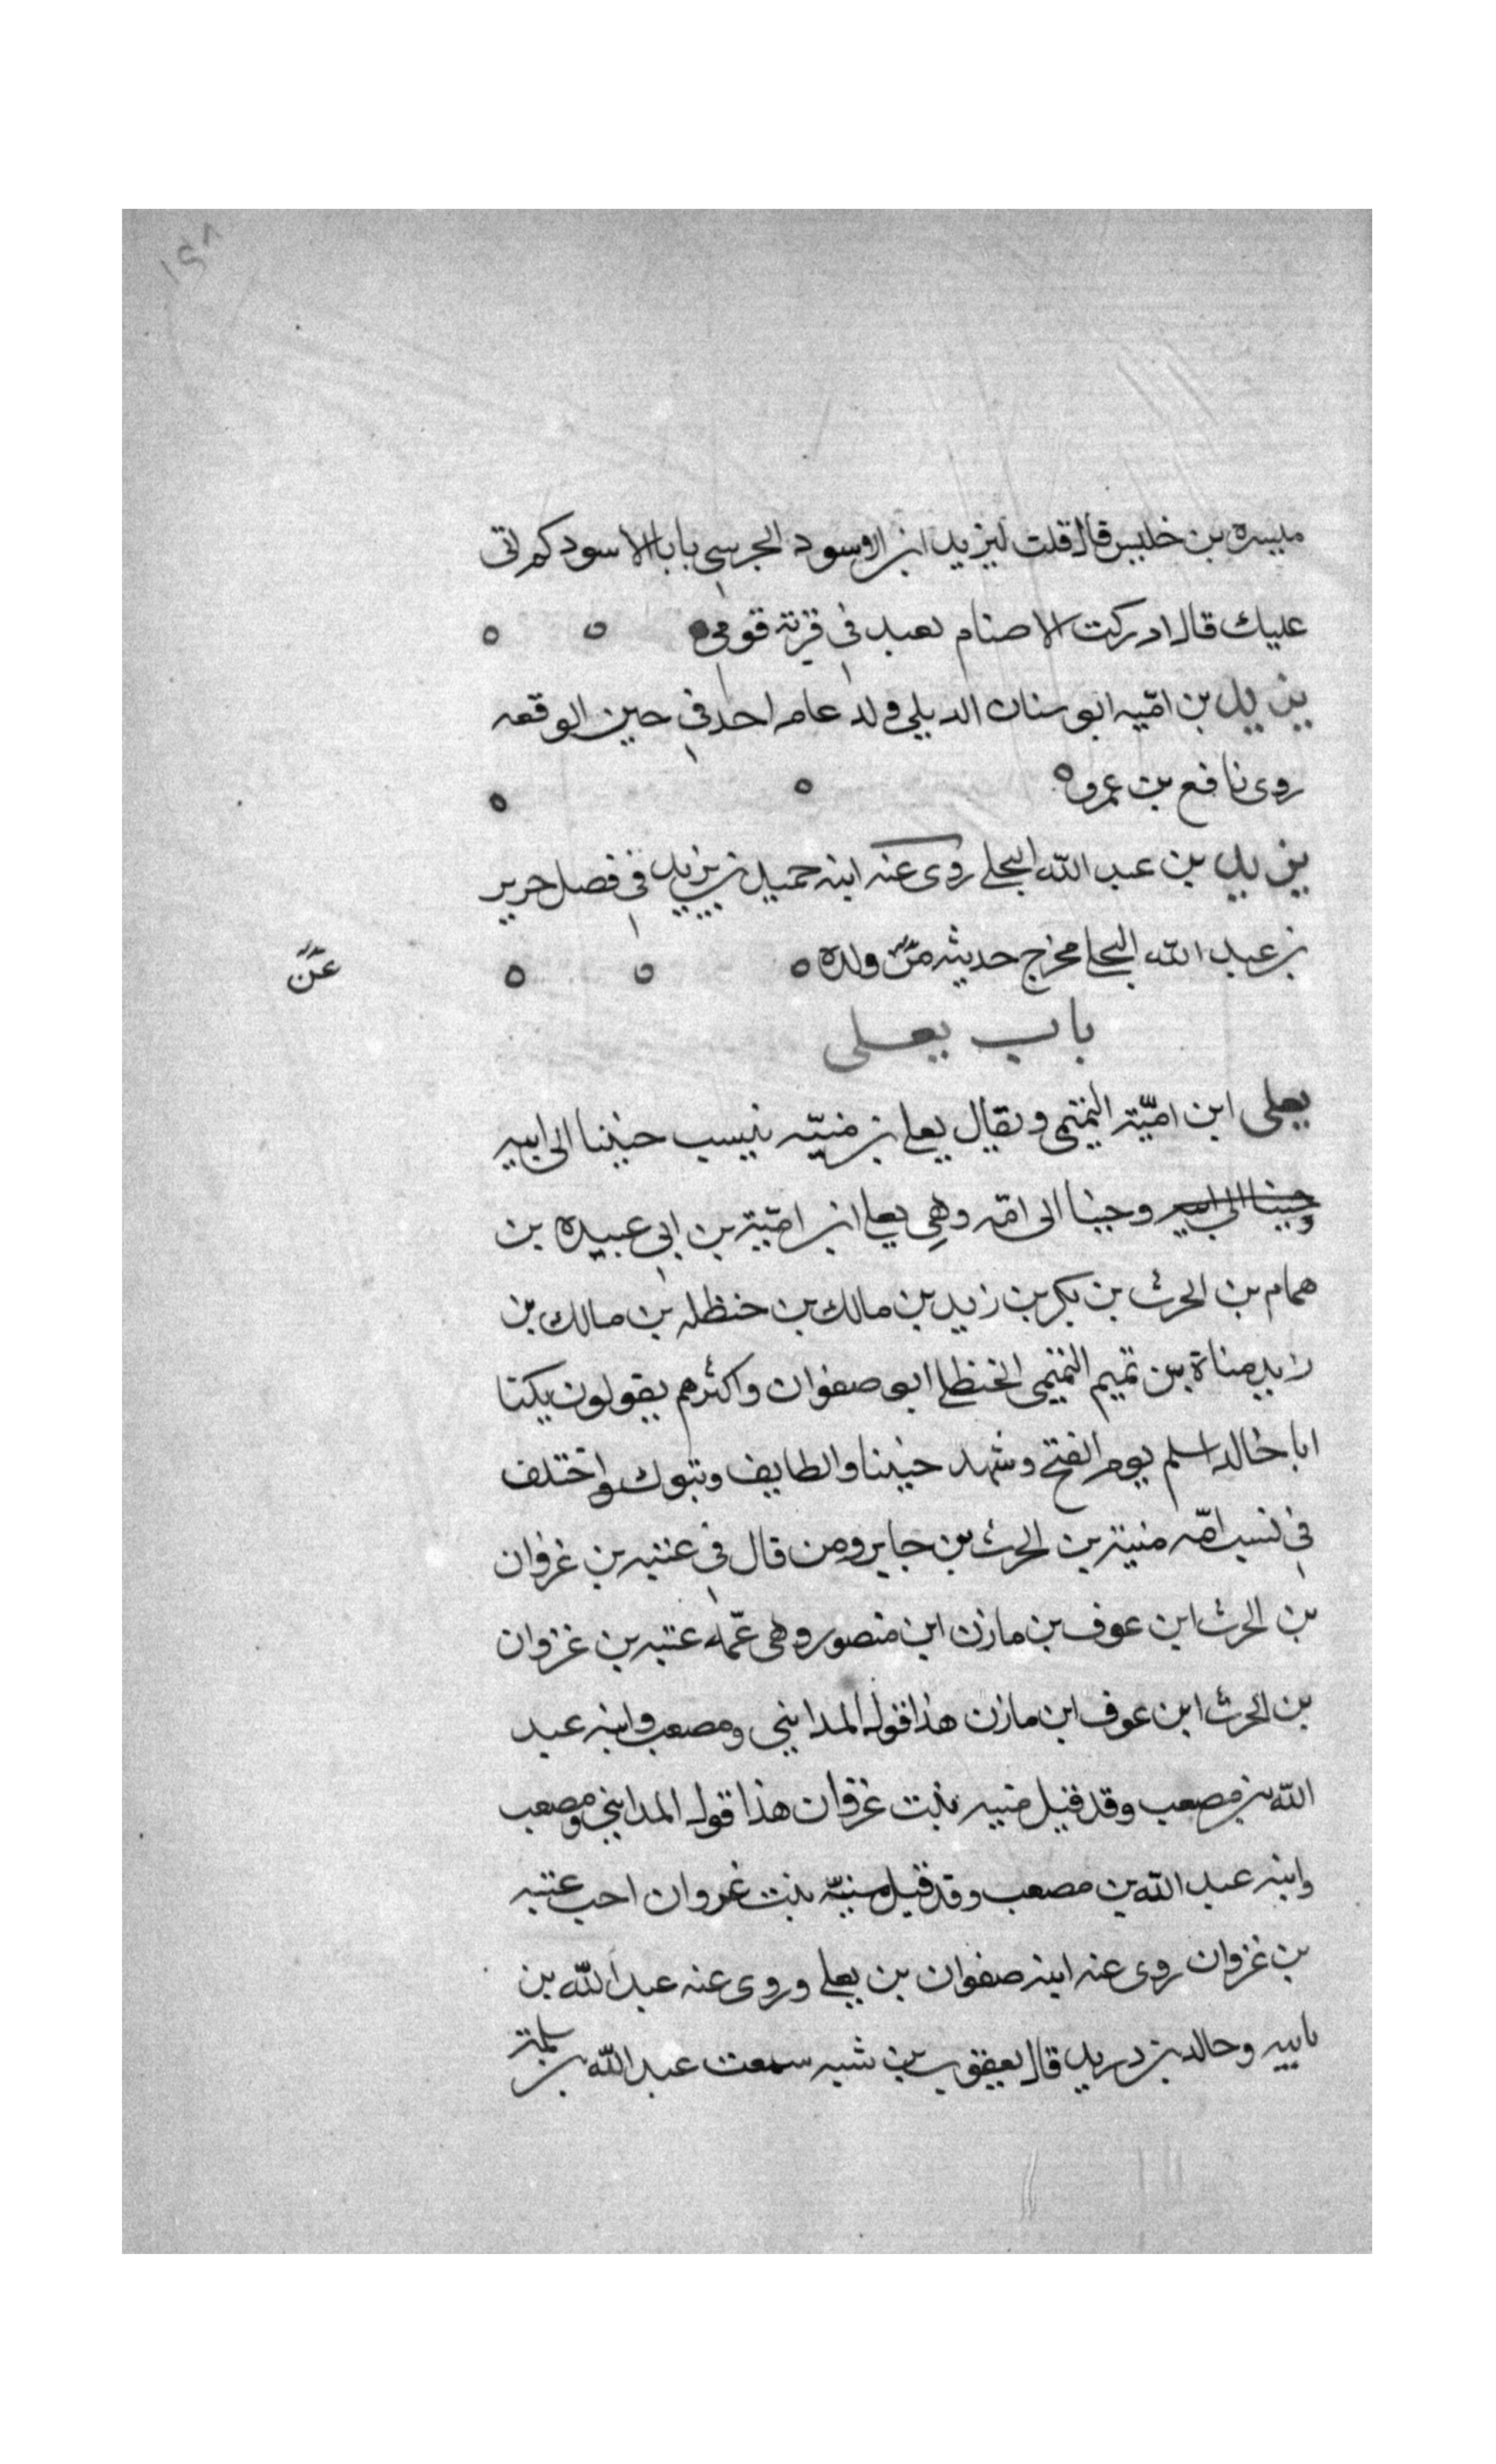 ١٥٨
ميسره بن خليس قال قلت ليزيد ابن الاسود الجرسي يابا الاسود كم اتى
عليك قال ادركت الاصنام تعبد في قرية قومي
يزيد بن اميه ابو سنان الديلي ولد عام احد في حين الوقعه
روى نافع بن عمرو
يزيد بن عبد الله البجلي روى عنه ابنه حميل بن يزيد في فضل جرير
بن عبد الله البجلي مخرج حديثه من ولده
عن
باب يعلى
يعلى ابن اميّة التميمي ويقال يعلى بن منيّه ينسب حينا الى ابيه
وحينا الى ابيه وحينا الى امّه وهي يعلى ابن اميّة بن ابي عبيده بن
همام بن الحرث بن بكر بن زيد بن مالك بن حنظله بن مالك بن
زيد مناة بن تميم التميمي الحنظلي ابو صفوان واكثرهم يقولون يكنا
ابا خالد اسلم يوم الفتح وشهد حنينا والطايف وتبوك واختلف
في نسب امّه منية بن الحرث بن جابر ومن قال في عتبه بن غزوان
بن الحرث ابن عوف بن مازن ابن منصور وهي عمّه عتبه بن غزوان
بن الحرث ابن عوف ابن مازن هذا قول المدايني ومصعب وابنه عبد
الله بن مصعب وقد قيل منيه بنت غزوان هذا قول المدايني ومصعب
وابنه عبد الله بن مصعب وقد قيل منيّه بنت غزوان اخت عتبه
بن غزوان روى عنه ابنه صفوان بن يعلى وروى عنه عبد الله بن
بابيه وخالد بن دريد قال يعقوب بن شبه سمعت عبد الله بن سلمة